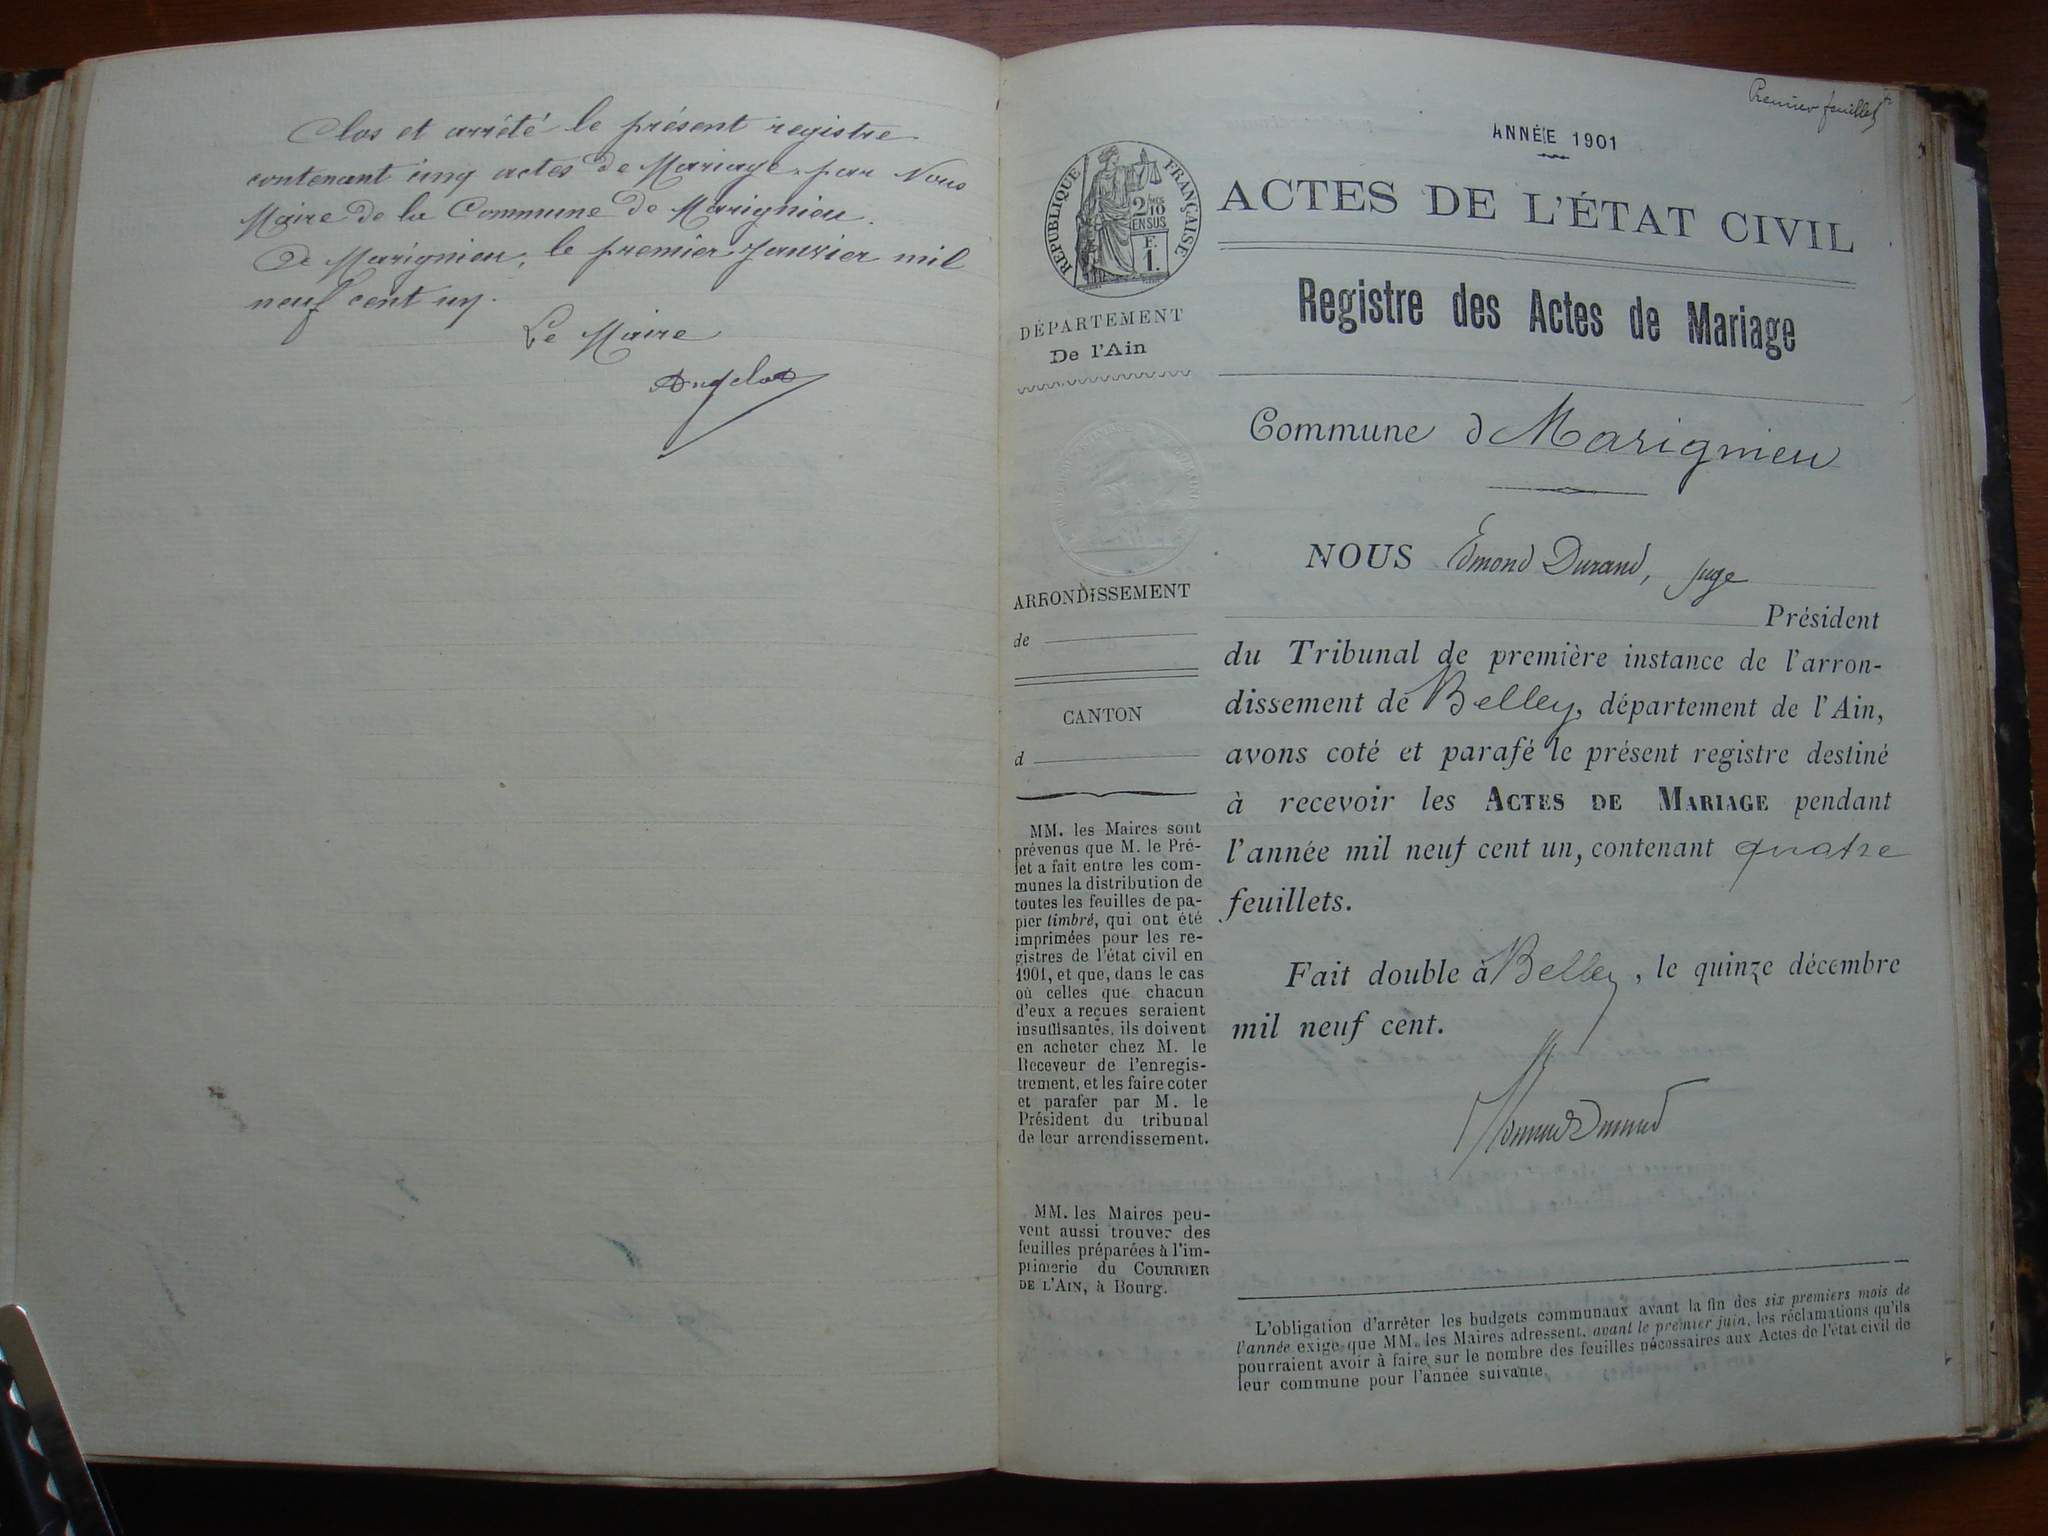 Clos et arrêté le présent registre
contenant cinq actes de Mariage, par Nous
Maire de la Commune de Marignieu.
De Marignieu, le premier Janvier mil
neuf cent un.
Le Maire
Premier feuillet
ANNÉE 1901
RÉPUBLIQUE FRANÇAISE
2/10
EN SUS
F.
1.
ACTES DE L'ÉTAT CIVIL
Registre des Actes de Mariage
DÉPARTEMENT
De l'Ain
Commune d Marignieu
NOUS Edmond Durand, juge
Président
du Tribunal de première instance de l'arron-
dissement de Belley, département de l'Ain,
avons coté et parafé le présent registre destiné
à recevoir les ACTES DE MARIAGE pendant
l'année mil neuf cent un, contenant quatre
feuillets.
Fait double à Belley, le quinze décembre
mil neuf cent.
Edmond Durand
ARRONDISSEMENT
de
CANTON
d
MM. les Maires sont
prévenus que M. le Pré-
fet a fait entre les com-
munes la distribution de
toutes les feuilles de pa-
pier timbré, qui ont été
imprimées pour les re-
gistres de l'état civil en
1901, et que, dans le cas
où celles que chacun
d'eux a reçues seraient
insuffisantes, ils doivent
en acheter chez M. le
Receveur de l'enregis-
trement, et les faire coter
et parafer par M. le
Président du tribunal
de leur arrondissement.
MM. les Maires peu-
vent aussi trouver des
feuilles préparées à l'im-
primerie du COURRIER
DE L'AIN, à Bourg.
L'obligation d'arrêter les budgets communaux avant la fin des six premiers mois de
l'année exige que MM. les Maires adressent, avant le premier juin, les réclamations qu'ils
pourraient avoir à faire sur le nombre des feuilles nécessaires aux Actes de l'état civil de
leur commune pour l'année suivante.